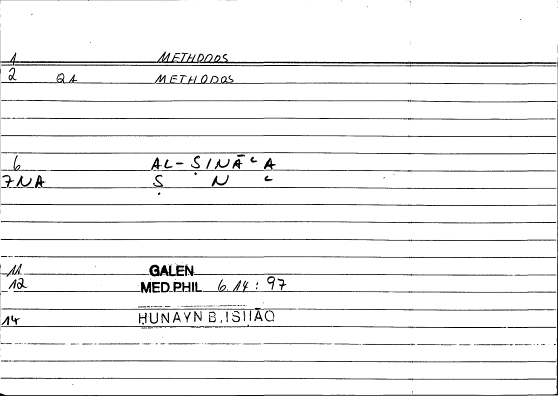 1 METHODOS
2 QA METHODOS
6 AL-ṢINĀʿA
7NA Ṣ N ʿ
11 GALEN
12 MED.PHIL 6.14 : 97
14 ḤUNAYN B.ISḤĀQ